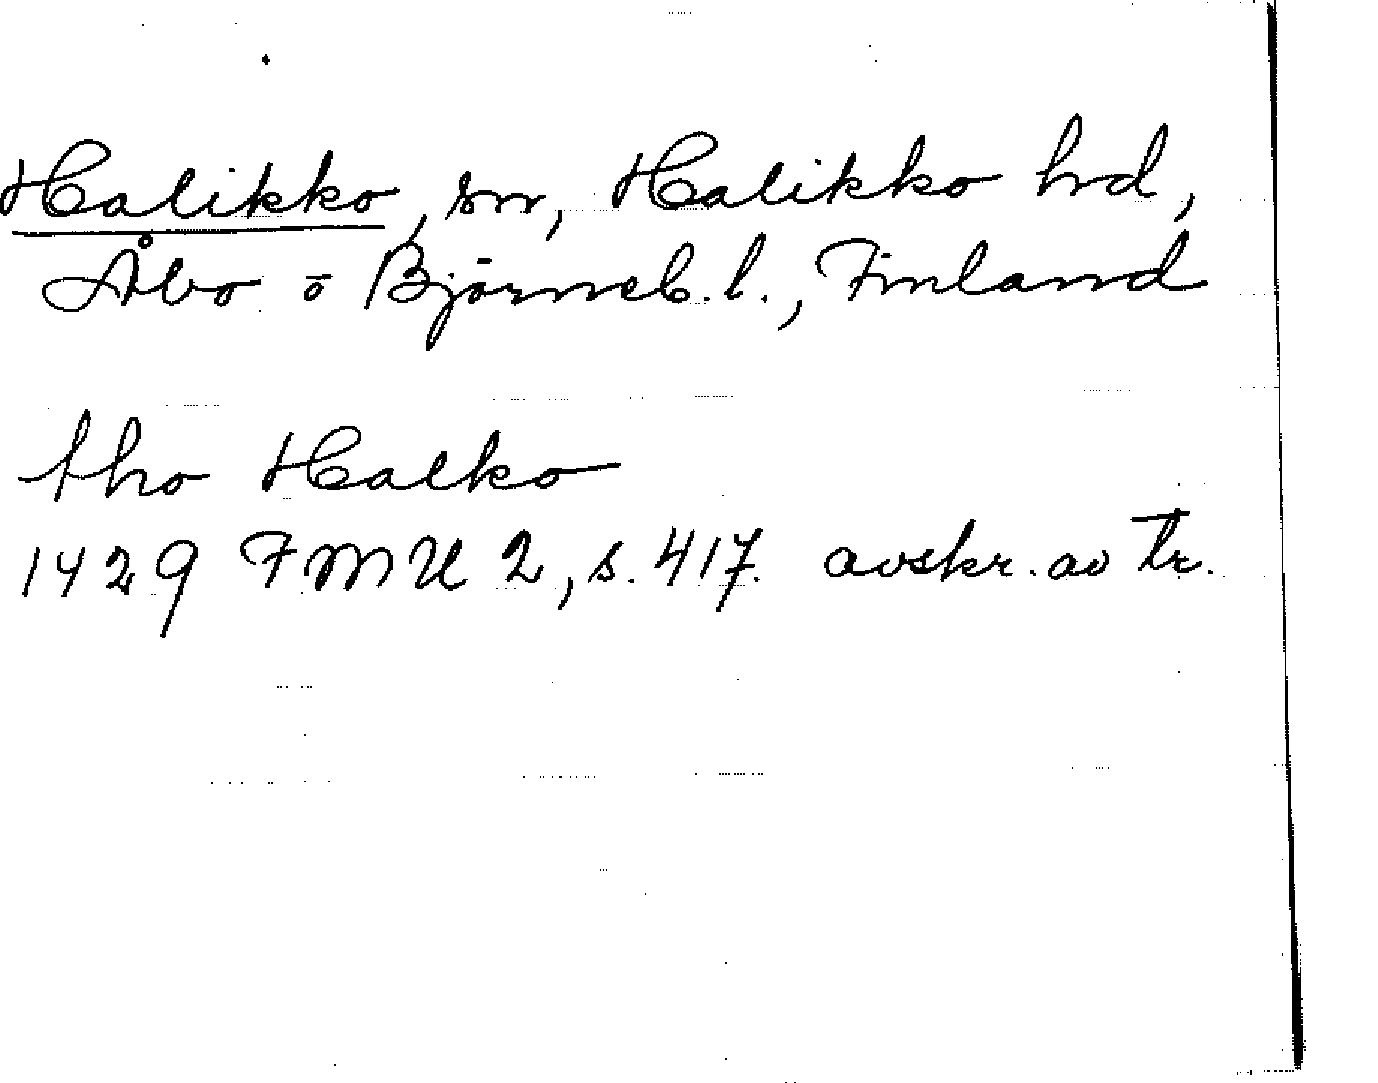 Halikko, sn, Halikko hrd,
Åbo o Björneb. l., Finland
tho Halko
1429 FMU 2, s. 417. avskr. av tr.